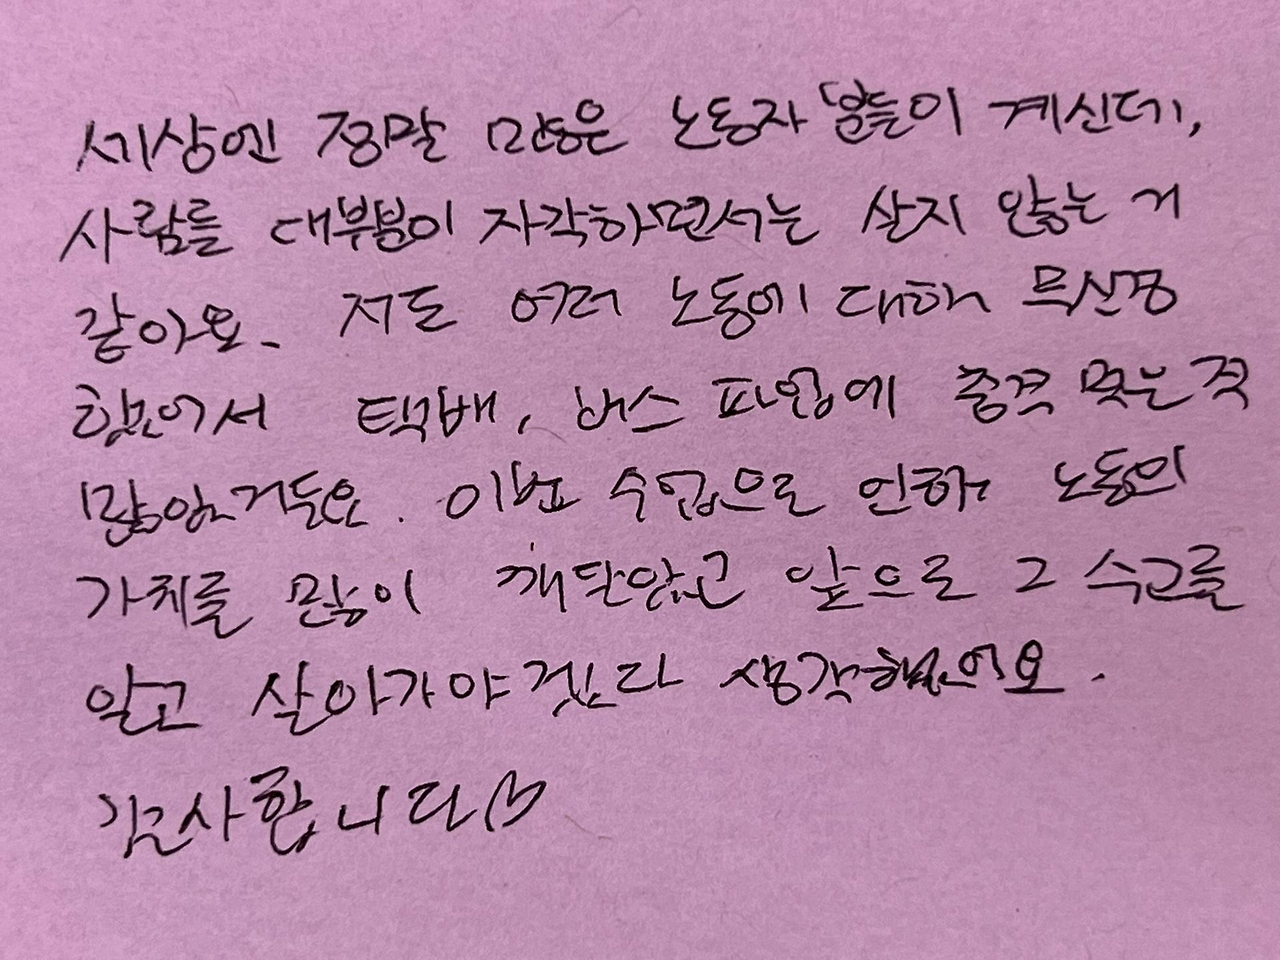 세상엔 정말 많은 노동자 분들이 계신데,
사람들 대부분이 자각하면서는 살지 않는 거
같아요. 저도 여러 노동에 대해 무신경
했어서 택배, 버스 파업에 충격 먹는 적
많았거든요. 이번 수업으로 인해 노동의
가치를 많이 깨달았고 앞으로 그 수고를
알고 살아가야겠다 생각했어요.
감사합니다♡